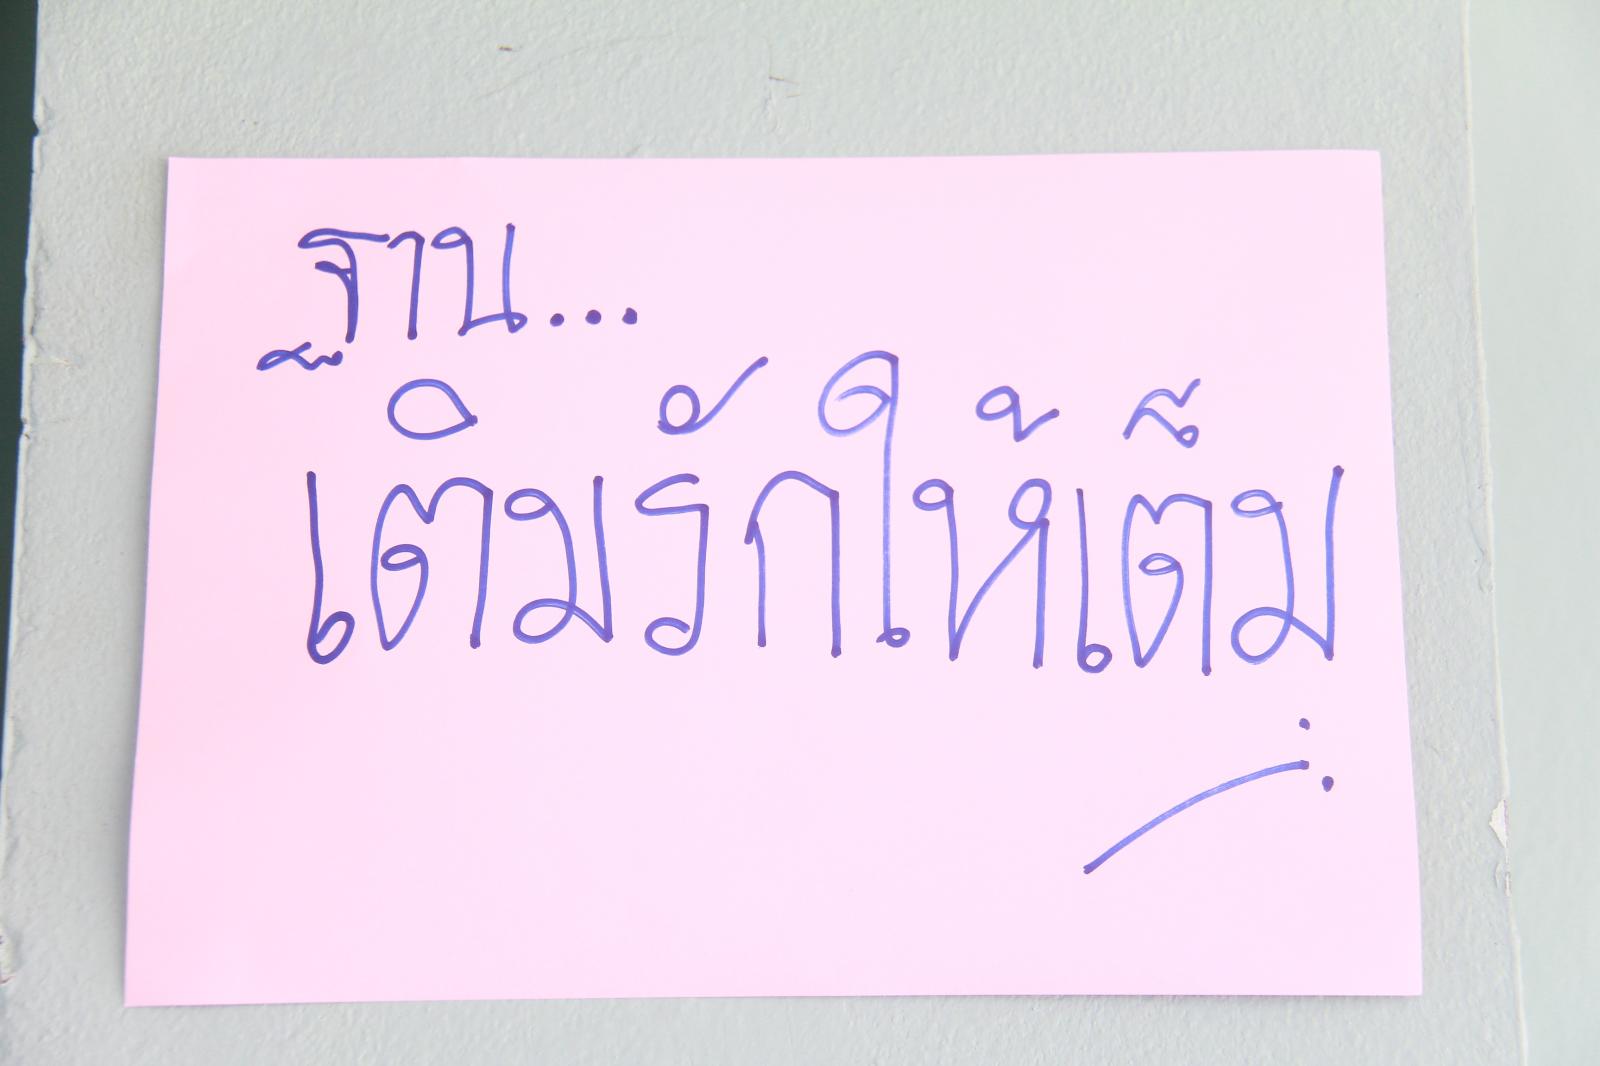 ฐาน...
เติมรักให้เต็ม